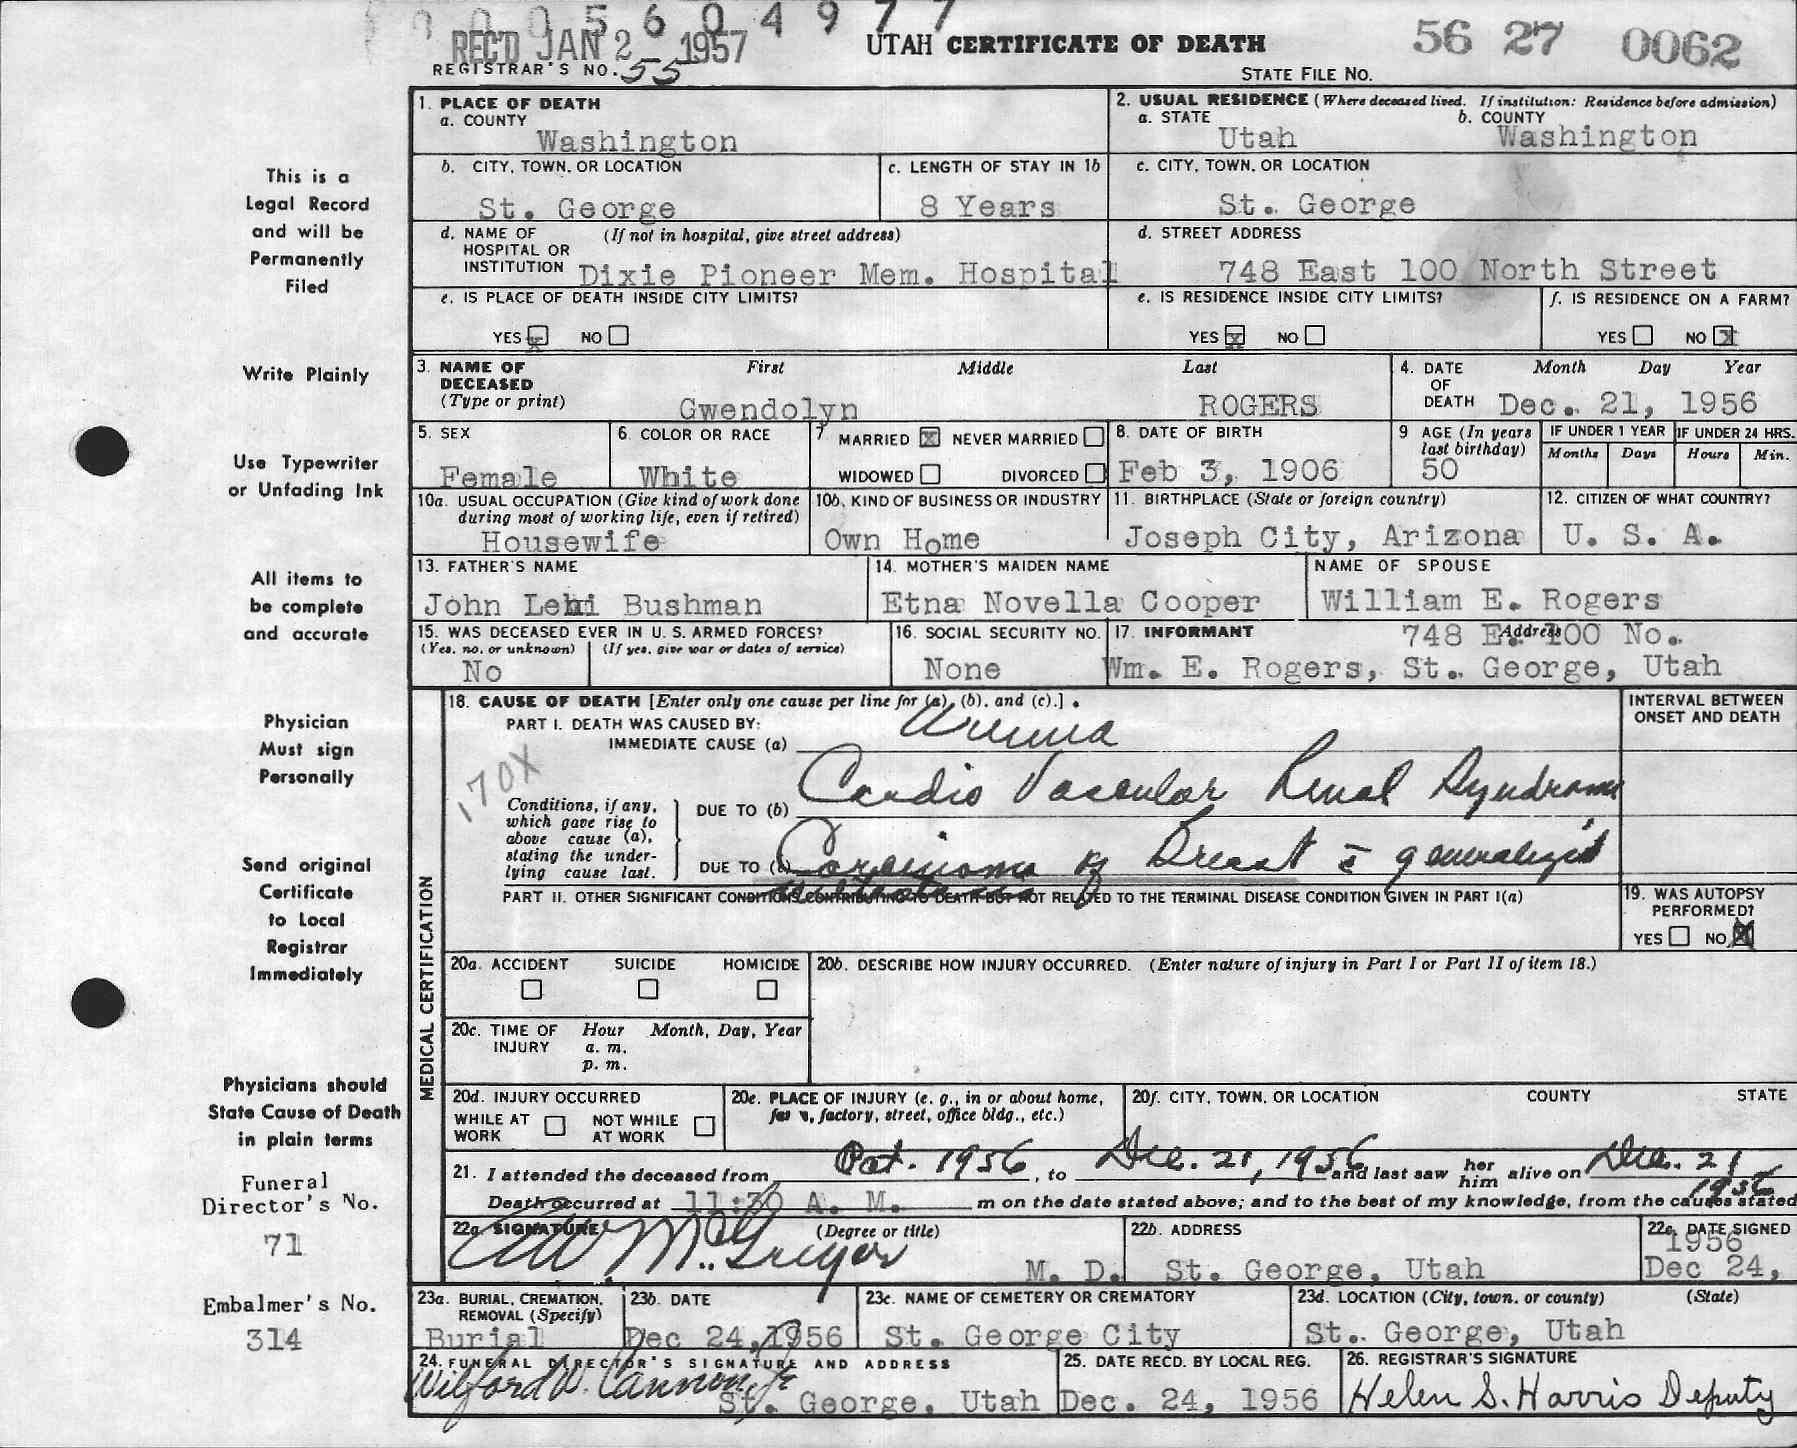 0005604977
REC'D JAN 2 1957
UTAH CERTIFICATE OF DEATH
56 27 0062
REGISTRAR'S NO. 55
STATE FILE NO.
1. PLACE OF DEATH
a. COUNTY
Washington
2. USUAL RESIDENCE (Where deceased lived. If institution: Residence before admission)
a. STATE b. COUNTY
Utah Washington
b. CITY, TOWN, OR LOCATION
St. George
c. LENGTH OF STAY IN 1b
8 Years
c. CITY, TOWN, OR LOCATION
St. George
d. NAME OF (If not in hospital, give street address)
HOSPITAL OR
INSTITUTION Dixie Pioneer Mem. Hospital
d. STREET ADDRESS
748 East 100 North Street
e. IS PLACE OF DEATH INSIDE CITY LIMITS?
YES x NO
e. IS RESIDENCE INSIDE CITY LIMITS?
YES x NO
f. IS RESIDENCE ON A FARM?
YES NO x
3. NAME OF DECEASED (Type or print)
First Middle Last
Gwendolyn ROGERS
4. DATE OF DEATH
Month Day Year
Dec. 21, 1956
5. SEX
Female
6. COLOR OR RACE
White
7 MARRIED x NEVER MARRIED
WIDOWED DIVORCED
8. DATE OF BIRTH
Feb 3, 1906
9 AGE (In years last birthday)
50
IF UNDER 1 YEAR IF UNDER 24 HRS.
Months Days Hours Min.
10a. USUAL OCCUPATION (Give kind of work done
during most of working life, even if retired)
Housewife
10b. KIND OF BUSINESS OR INDUSTRY
Own Home
11. BIRTHPLACE (State or foreign country)
Joseph City, Arizona
12. CITIZEN OF WHAT COUNTRY?
U. S. A.
13. FATHER'S NAME
John Lehi Bushman
14. MOTHER'S MAIDEN NAME
Etna Novella Cooper
NAME OF SPOUSE
William E. Rogers
15. WAS DECEASED EVER IN U. S. ARMED FORCES?
(Yes, no, or unknown) (If yes, give war or dates of service)
No
16. SOCIAL SECURITY NO.
None
17. INFORMANT Address
748 E. 100 No.
Wm. E. Rogers, St. George, Utah
18. CAUSE OF DEATH [Enter only one cause per line for (a), (b), and (c).]
PART I. DEATH WAS CAUSED BY:
IMMEDIATE CAUSE (a) Uremia
170X
Conditions, if any,
which gave rise to
above cause (a),
stating the under-
lying cause last.
DUE TO (b) Cardio Vascular Renal Syndrome
DUE TO (c) Carcinoma of Breast c̄ generalized
metastasis
INTERVAL BETWEEN
ONSET AND DEATH
PART II. OTHER SIGNIFICANT CONDITIONS CONTRIBUTING TO DEATH BUT NOT RELATED TO THE TERMINAL DISEASE CONDITION GIVEN IN PART I(a)
19. WAS AUTOPSY
PERFORMED?
YES NO X
20a. ACCIDENT SUICIDE HOMICIDE
20b. DESCRIBE HOW INJURY OCCURRED. (Enter nature of injury in Part I or Part II of item 18.)
20c. TIME OF INJURY
Hour Month, Day, Year
a. m.
p. m.
20d. INJURY OCCURRED
WHILE AT WORK NOT WHILE AT WORK
20e. PLACE OF INJURY (e. g., in or about home,
farm, factory, street, office bldg., etc.)
20f. CITY, TOWN, OR LOCATION COUNTY STATE
21. I attended the deceased from Oct. 1956, to Dec. 21, 1956 and last saw her him alive on Dec. 21 1956
Death occurred at 11:30 A. M. m on the date stated above; and to the best of my knowledge, from the causes stated
22a. SIGNATURE (Degree or title)
AW McGregor M. D.
22b. ADDRESS
St. George, Utah
22c. DATE SIGNED
1956
Dec 24,
23a. BURIAL, CREMATION,
REMOVAL (Specify)
Burial
23b. DATE
Dec 24, 1956
23c. NAME OF CEMETERY OR CREMATORY
St. George City
23d. LOCATION (City, town, or county) (State)
St. George, Utah
24. FUNERAL DIRECTOR'S SIGNATURE AND ADDRESS
Wilford W. Cannon Jr
St. George, Utah
25. DATE RECD. BY LOCAL REG.
Dec. 24, 1956
26. REGISTRAR'S SIGNATURE
Helen S. Harris Deputy
MEDICAL CERTIFICATION
This is a
Legal Record
and will be
Permanently
Filed
Write Plainly
Use Typewriter
or Unfading Ink
All items to
be complete
and accurate
Physician
Must sign
Personally
Send original
Certificate
to Local
Registrar
Immediately
Physicians should
State Cause of Death
in plain terms
Funeral
Director's No.
71
Embalmer's No.
314